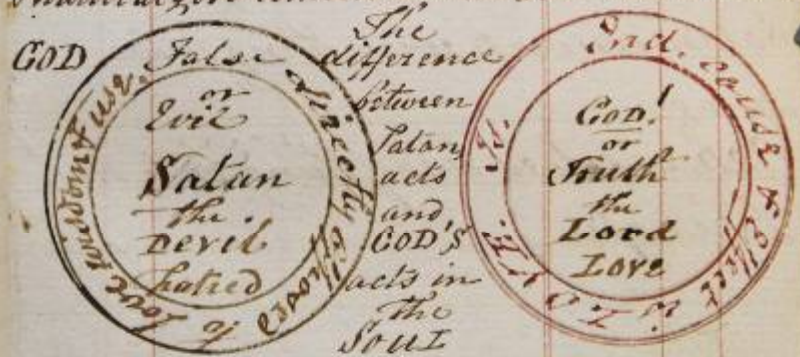 GOD
False
or
Evil
Satan
the
Devil
hatred
directly opposed to love wisdom & use.
The
difference
between
Satan,
acts
and
GOD'S
acts in
the
SOUL
End, cause & effect
GOD!
or
Truth
the
Lord
Love